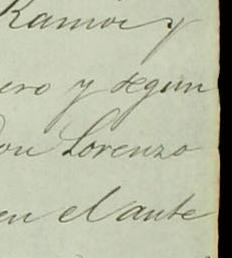 Ramos y
ero y segun
Don Lorenzo
en el ante